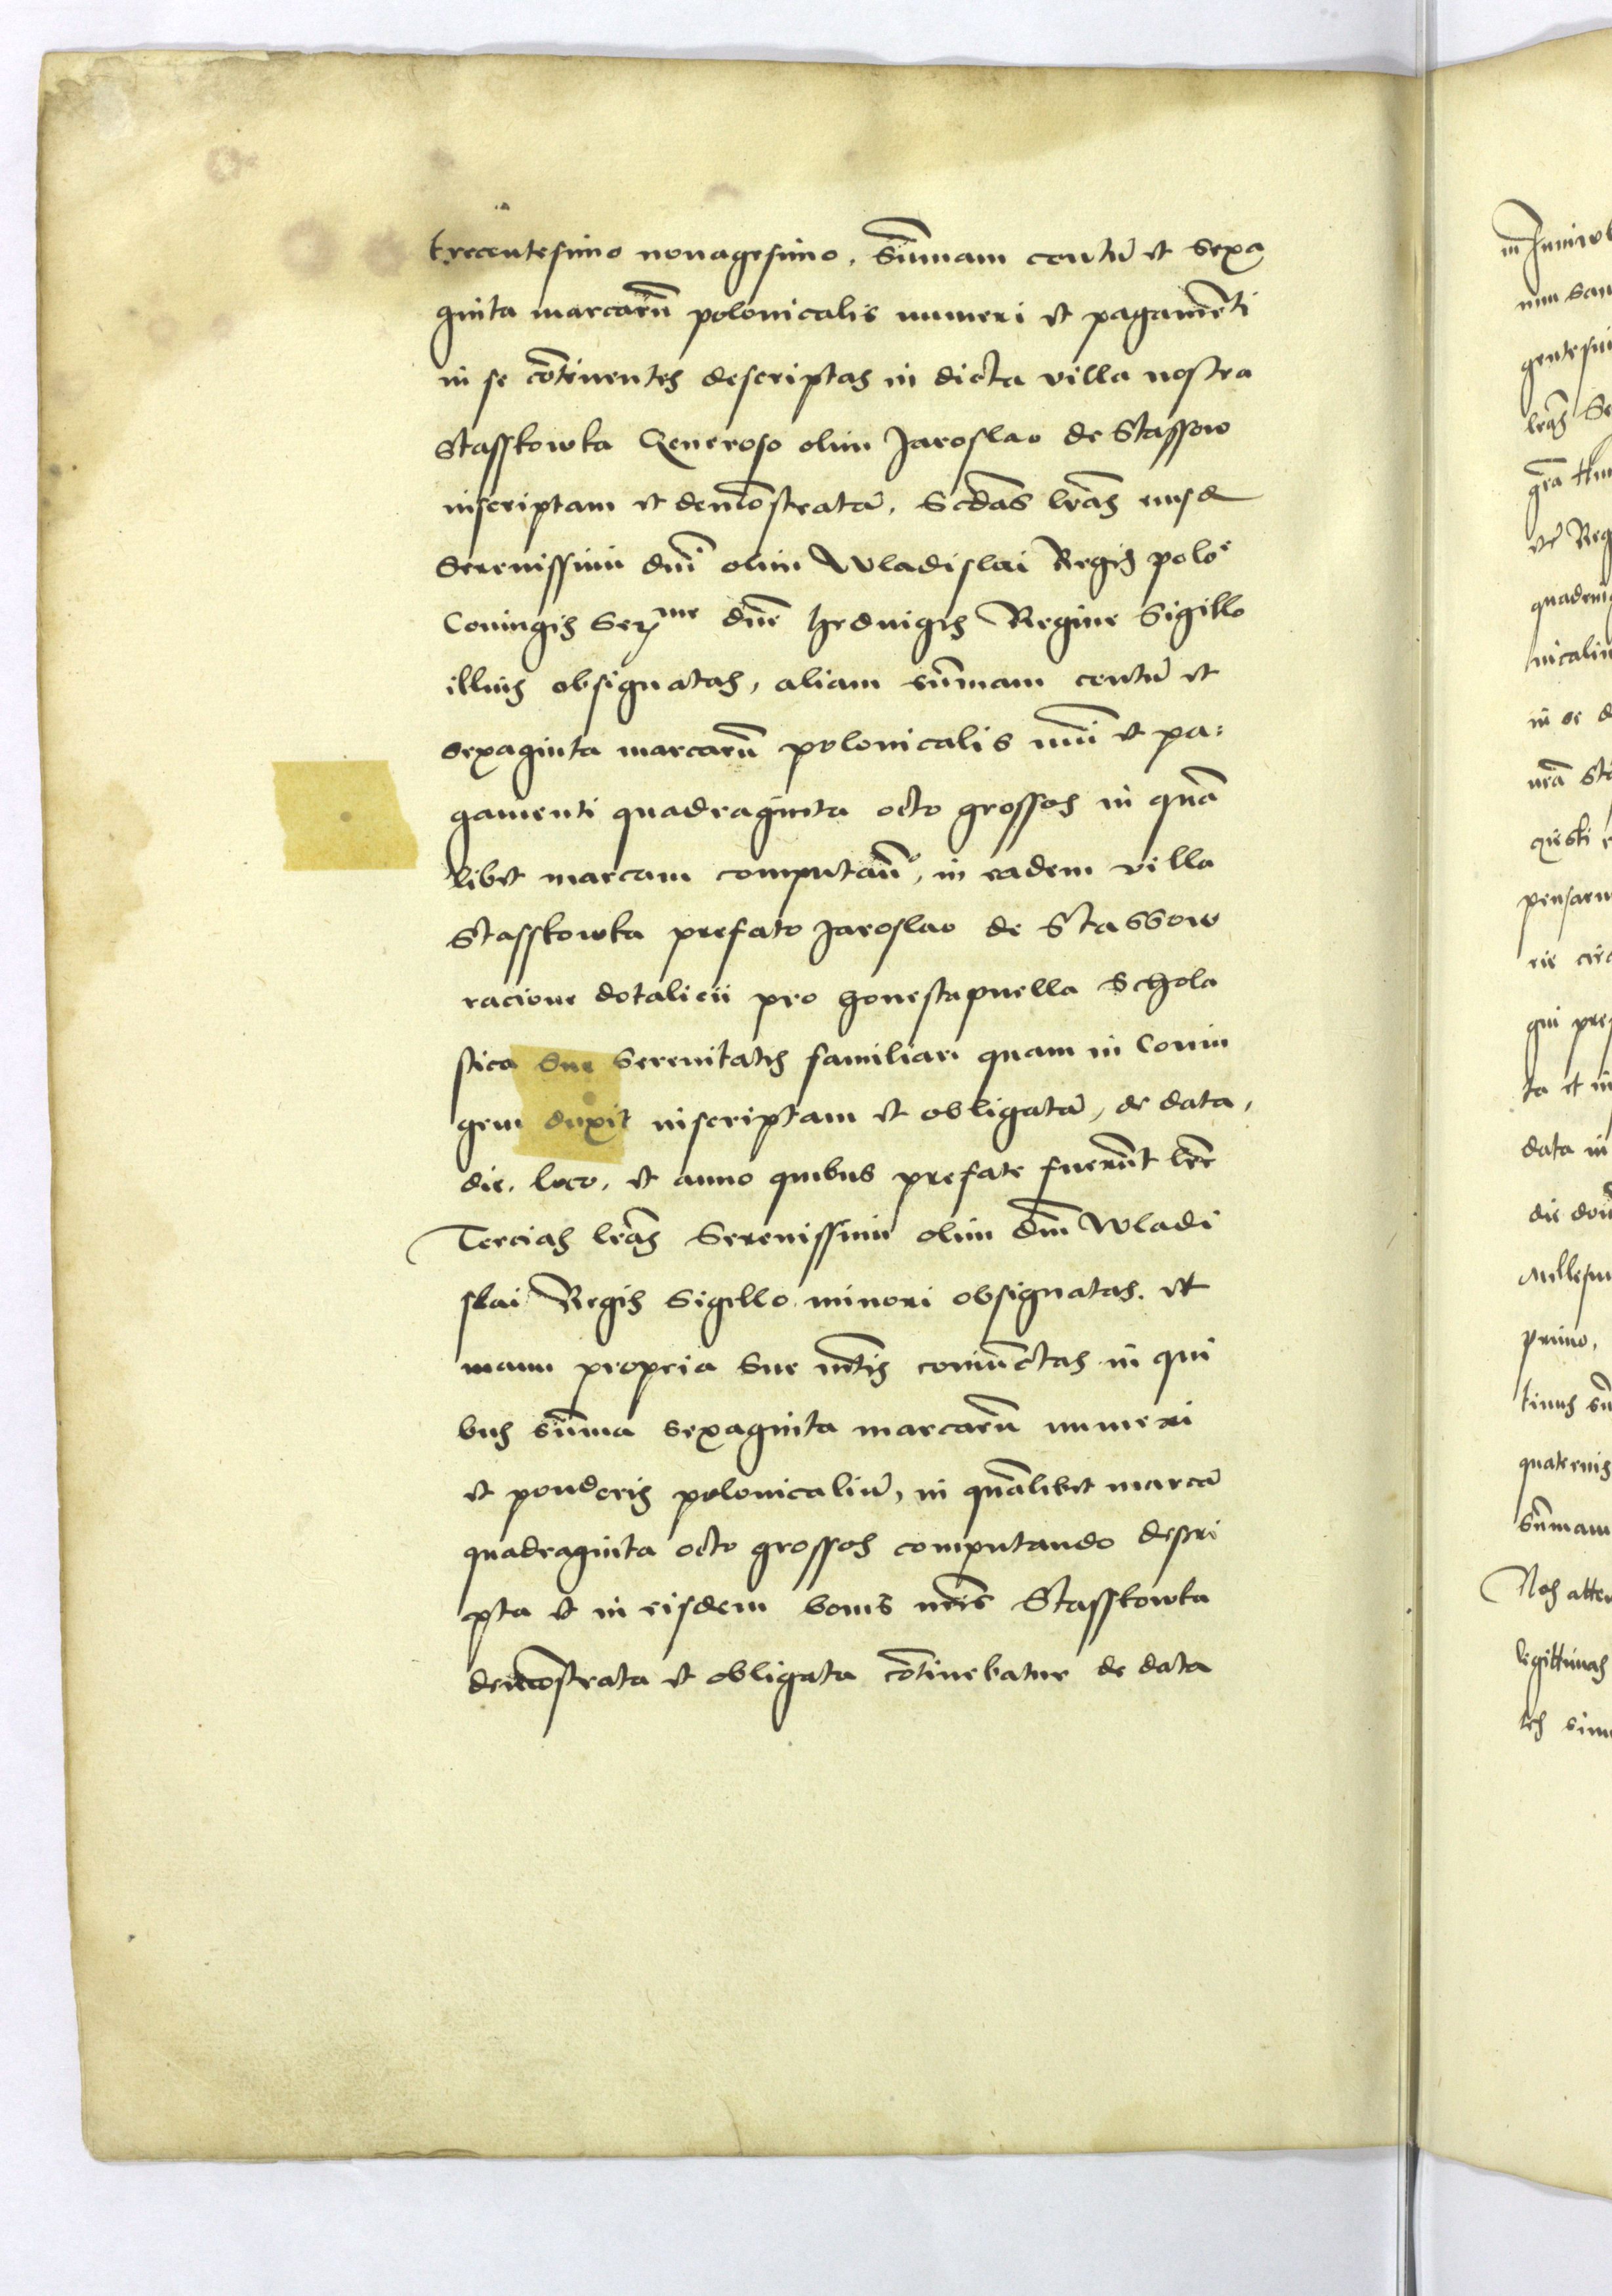 trecentesimo nonagesimo, Sūmam centū et sexa
ginta marcarū polonicalis numeri et pagamēti
in se cōtinentes descriptas in dicta villa nostra
Stasskowka Generoso olim Jaroslao de Stassow
inscriptam et demōstratā, Scdās lrās eiusd
Serenissimi dnī olim Wladislai Regis polo⁹
Coniugis Ser^me dnē Hedwigis Regine Sigillo
illius obsignatas, aliam sūmam centū et
sexaginta marcarū polonicalis nūi et pa:
gamenti quadraginta octo grossos in quā
libet marcam computañ, in eadem villa
Stasskowka prefato Jaroslao de Stassow
racione dotalicii pro honesta puella Schola
stica sue Serenitatis familiari quam in Coniu
gem duxit inscriptam et obligatā, de data,
die, loco, et anno quibus prefate fuerūt lrē
Tercias lrās Serenissimi olim dnī Wladi
slai Regis Sigillo minori obsignatas. et
manu propria Sue mtīs coniūctas in qui
bus sūma sexaginta marcarū numeri
et ponderis polonicaliū, in quālibet marcā
quadraginta octo grossos computando descri
pta et in eisdem bonis nrīs Stasskowka
demōstrata et obligata cōtinebatur de data
in
num
lrās
grā
Reg
in se
nrā
data in
primo,
quaternis
Sūmam
Nos
legittimas